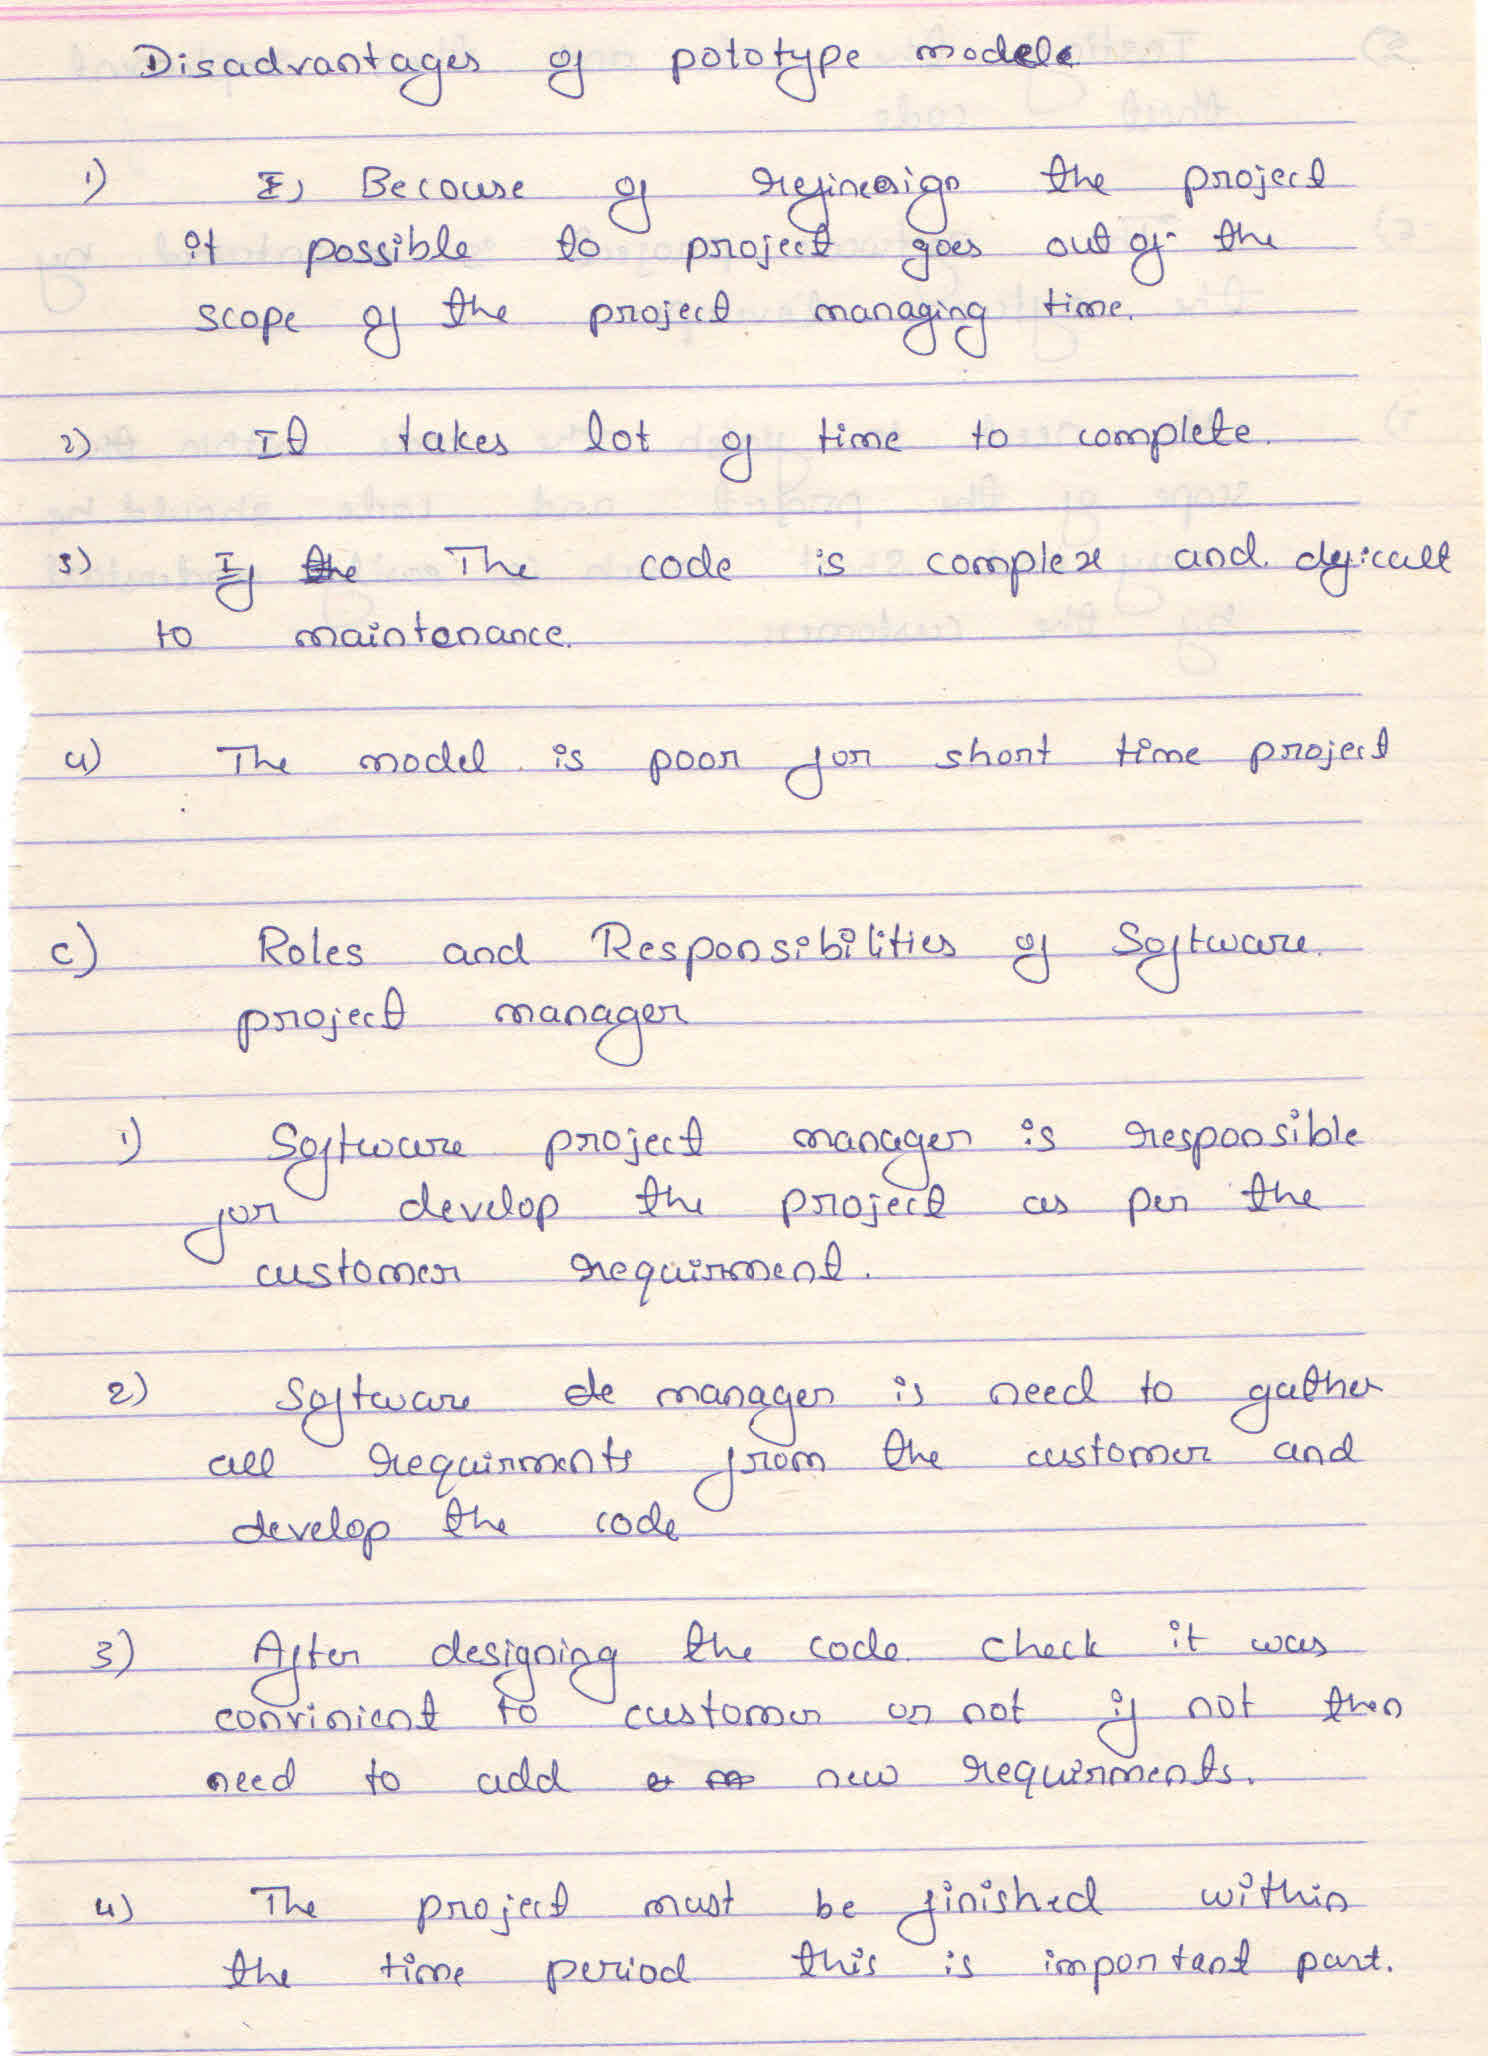 Disadvantages of pototype model
1) Becouse of refinesign the project
it possible to project goes out of the
scope of the project managing time.
2) It takes lot of time to complete.
3) If the The code is complex and dificult
to maintenance.
4) The model is poor for short time project
c) Roles and Responsibilities of Software
project manager
1) Software project manager is responsible
for develop the project as per the
customer requirment.
2) Software de manager is need to gather
all requirments from the customer and
develop the code
3) After designing the code check it was
convinient to customer or not if not then
need to add new requirments.
4) The project must be finished within
the time period this is important part.